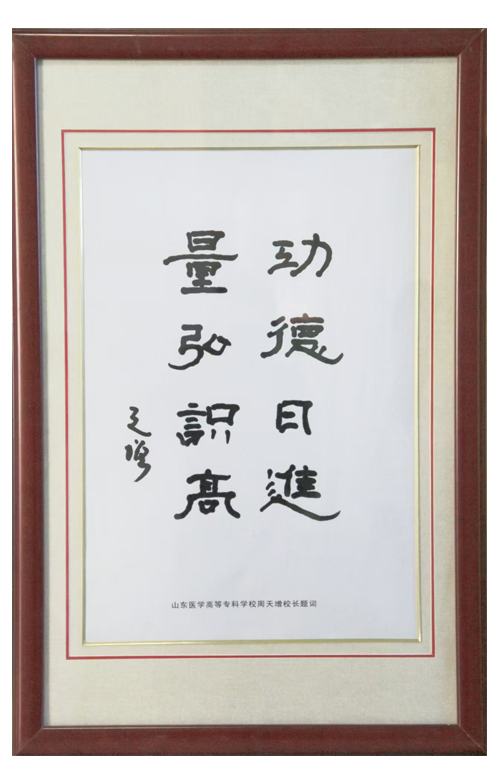 功德日進
量弘識高
天增
山东医学高等专科学校周天增校长题词